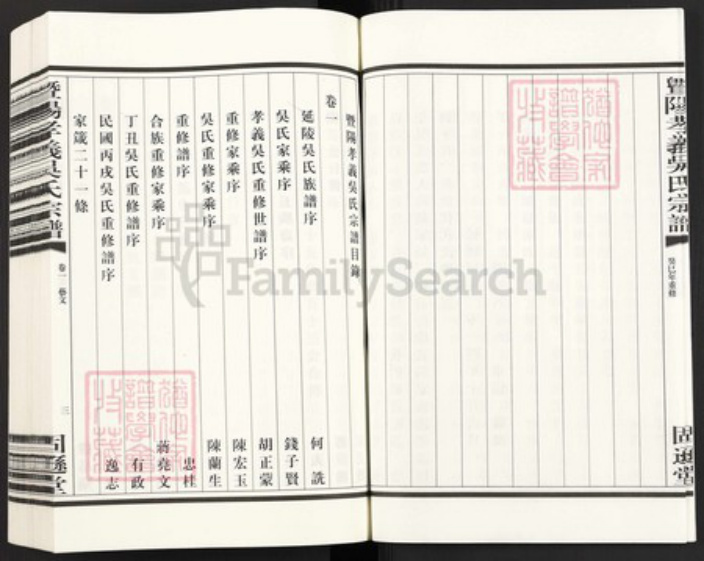 暨陽孝義吳氏宗譜目錄
卷一
延陵吳氏族譜序 何詵
吳氏家乘序 錢子賢
孝義吳氏重修世譜序 胡正蒙
重修家乘序 陳宏玉
吳氏重修家乘序 陳蘭生
重修譜序 忠桂
合族重修家乘序 蔣堯文
丁丑吳氏重修譜序 有政
民國丙戌吳氏重修譜序 逸志
家箴二十一條
暨陽孝義吳氏宗譜
卷一 藝文
三
固遜堂
暨陽孝義吳氏宗譜
癸巳年重修
固遜堂
FamilySearch